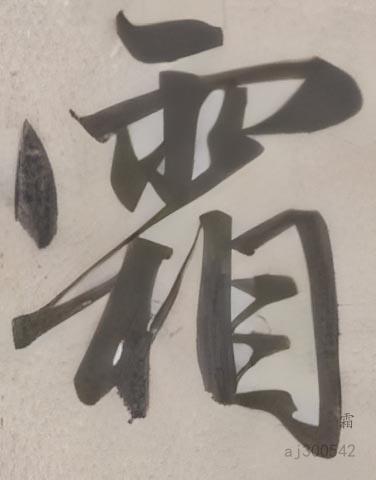 霜
霜
aj300542